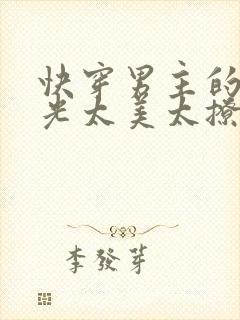 快穿男主的
光太美太撩
李發芽